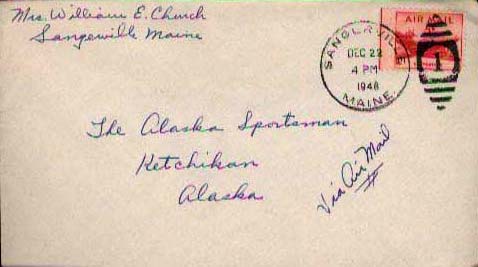 Mrs. William E. Church
Sangerville Maine
AIR MAIL
SANGERVILLE
DEC 22
4 PM
1948
MAINE.
1
The Alaska Sportsman
Ketchikan
Alaska
Via Air Mail